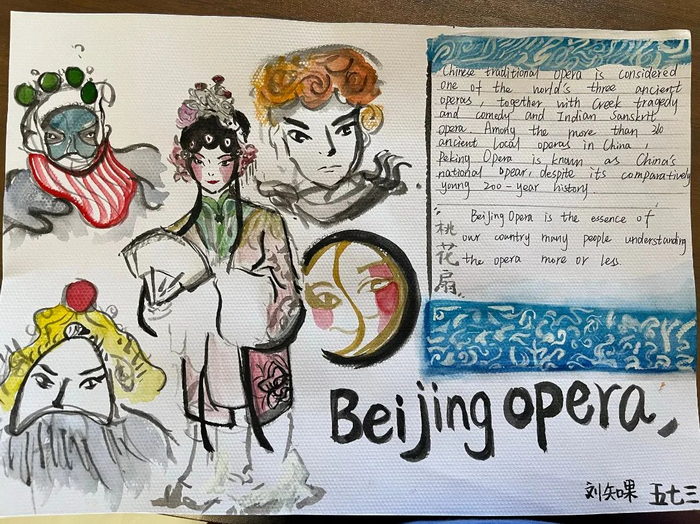 Chinese traditional opera is considered
one of the world's three ancient
operas, together with Greek tragedy
and comedy and Indian Sanskrit
opera. Among the more than 360
ancient local operas in China,
Peking Opera is known as China's
national opear, despite its comparatively
young 200-year history.
Beijing Opera is the essence of
our country many people understanding
the opera more or less.
桃花扇
Beijing opera
刘知果 五七三